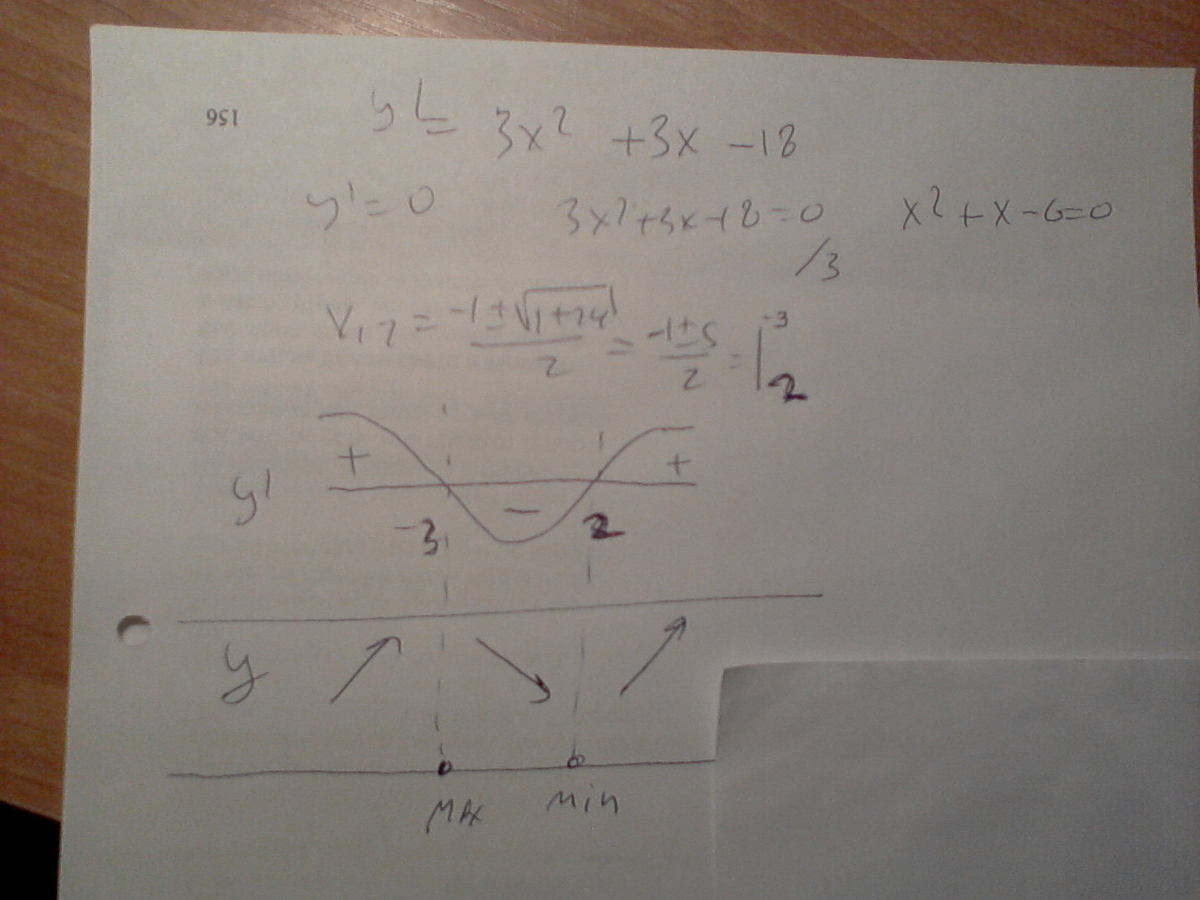 156
y' = 3x² +3x -18
y' = 0 3x²+3x-18=0 x²+x-6=0
/3
x₁,₂ = (-1±√(1+24))/2 = (-1±5)/2 = | -3 2
+ +
y' -
-3 2
y
MAX Min